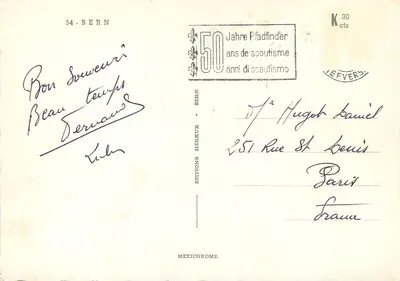 54 - BERN
50 Jahre Pfadfinder
ans de scoutisme
anni di scautismo
K 30
cts
Bon Souvenir
Beau temps
Fernand
EDITIONS MÉREUR - BERN
Hugot Daniel
251 Rue St Denis
Paris
France
MEXICHROME